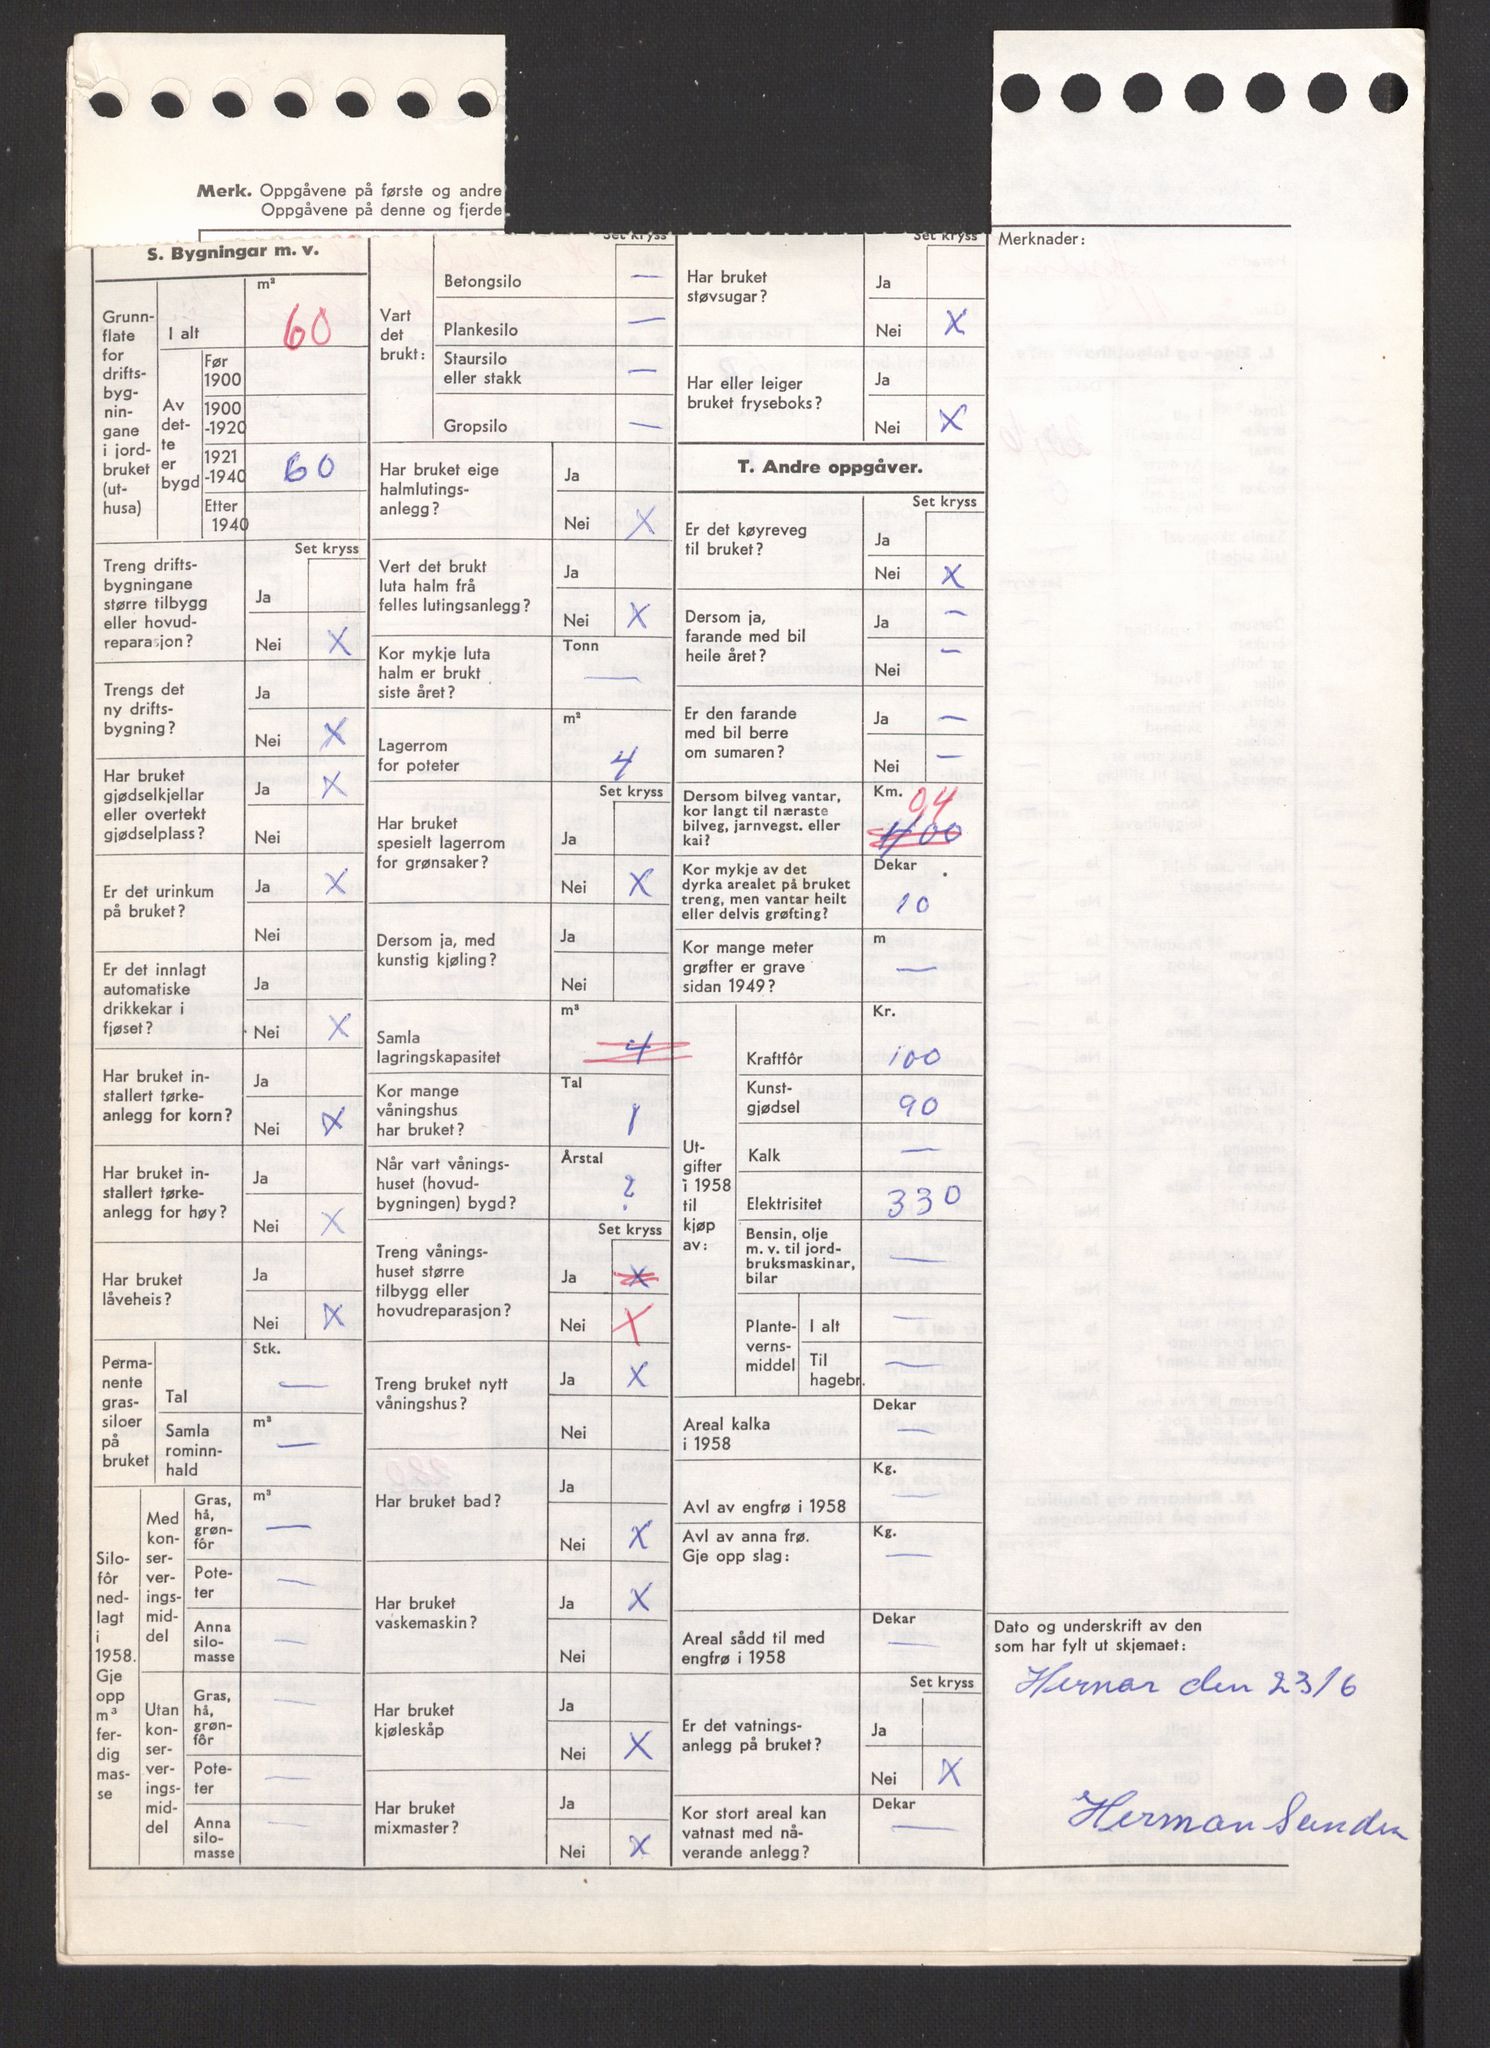 Merk. Oppgåvene på første og andre
Oppgåvene på denne og fjerde
S. Bygningar m. v.
Grunn-
flate
for
drifts-
byg-
nin-
gane
i jord-
bruket
(ut-
husa)
m²
I alt 60
Av
det-
te
er
bygd
Før
1900
1900
-1920
1921
-1940 60
Etter
1940
Set kryss
Treng drifts-
bygningane
større tilbygg
eller hovud-
reparasjon?
Ja
Nei X
Trengs det
ny drifts-
bygning?
Ja
Nei X
Har bruket
gjødselkjellar
eller overtekt
gjødselplass?
Ja X
Nei
Er det urinkum
på bruket?
Ja X
Nei
Er det innlagt
automatiske
drikkekar i
fjøset?
Ja
Nei X
Har bruket in-
stallert tørke-
anlegg for korn?
Ja
Nei X
Har bruket in-
stallert tørke-
anlegg for høy?
Ja
Nei X
Har bruket
låveheis?
Ja
Nei X
Perma-
nente
gras-
siloer
på
bruket
Stk.
Tal —
m³
Samla
rominn-
hald —
Silo-
fôr
ned-
lagt
i
1958.
Gje
opp
m³
fer-
dig
mas-
se
Med
kon-
ser-
ver-
ings-
mid-
del
m³
Gras,
hå,
grøn-
fôr —
Pote-
ter —
Anna
silo-
masse —
Utan
kon-
ser-
ver-
ings-
mid-
del
Gras,
hå,
grøn-
fôr —
Pote-
ter —
Anna
silo-
masse —
Set kryss
Vart
det
brukt:
Betongsilo —
Plankesilo —
Staursilo
eller stakk —
Gropsilo —
Har bruket eige
halmlutings-
anlegg?
Ja
Nei X
Vert det brukt
luta halm frå
felles lutingsanlegg?
Ja
Nei X
Kor mykje luta
halm er brukt
siste året?
Tonn
—
Lagerrom
for poteter
m²
4
Set kryss
Har bruket
spesielt lagerrom
for grønsaker?
Ja
Nei X
Dersom ja, med
kunstig kjøling?
Ja
Nei
Samla
lagringskapasitet
m³
4
Kor mange
våningshus
har bruket?
Tal
1
Når vart vånings-
huset (hovud-
bygningen) bygd?
Årstal
?
Set kryss
Treng vånings-
huset større
tilbygg eller
hovudreparasjon?
Ja X
Nei X
Treng bruket nytt
våningshus?
Ja X
Nei
Har bruket bad?
Ja
Nei X
Har bruket
vaskemaskin?
Ja X
Nei
Har bruket
kjøleskåp
Ja
Nei X
Har bruket
mixmaster?
Ja
Nei X
Set kryss
Har bruket
støvsugar?
Ja
Nei X
Har eller leiger
bruket fryseboks?
Ja
Nei X
T. Andre oppgåver.
Set kryss
Er det køyreveg
til bruket?
Ja
Nei X
Dersom ja,
farande med bil
heile året?
Ja —
Nei —
Er den farande
med bil berre
om sumaren?
Ja —
Nei —
Dersom bilveg vantar,
kor langt til næraste
bilveg, jarnvegst. eller
kai?
Km. 0,4
400
Kor mykje av det
dyrka arealet på bruket
treng, men vantar heilt
eller delvis grøfting?
Dekar
10
Kor mange meter
grøfter er grave
sidan 1949?
m
—
Ut-
gifter
i 1958
til
kjøp
av:
Kr.
Kraftfôr 100
Kunst-
gjødsel 90
Kalk —
Elektrisitet 330
Bensin, olje
m. v. til jord-
bruksmaskinar,
bilar —
Plante-
verns-
middel
I alt —
Til
hagebr. —
Areal kalka
i 1958
Dekar
—
Avl av engfrø i 1958
Kg.
—
Avl av anna frø.
Gje opp slag:
Kg.
—
Areal sådd til med
engfrø i 1958
Dekar
—
Set kryss
Er det vatnings-
anlegg på bruket?
Ja
Nei X
Kor stort areal kan
vatnast med nå-
verande anlegg?
Dekar
—
Merknader:
Dato og underskrift av den
som har fylt ut skjemaet:
Hernar den 23/6
Herman